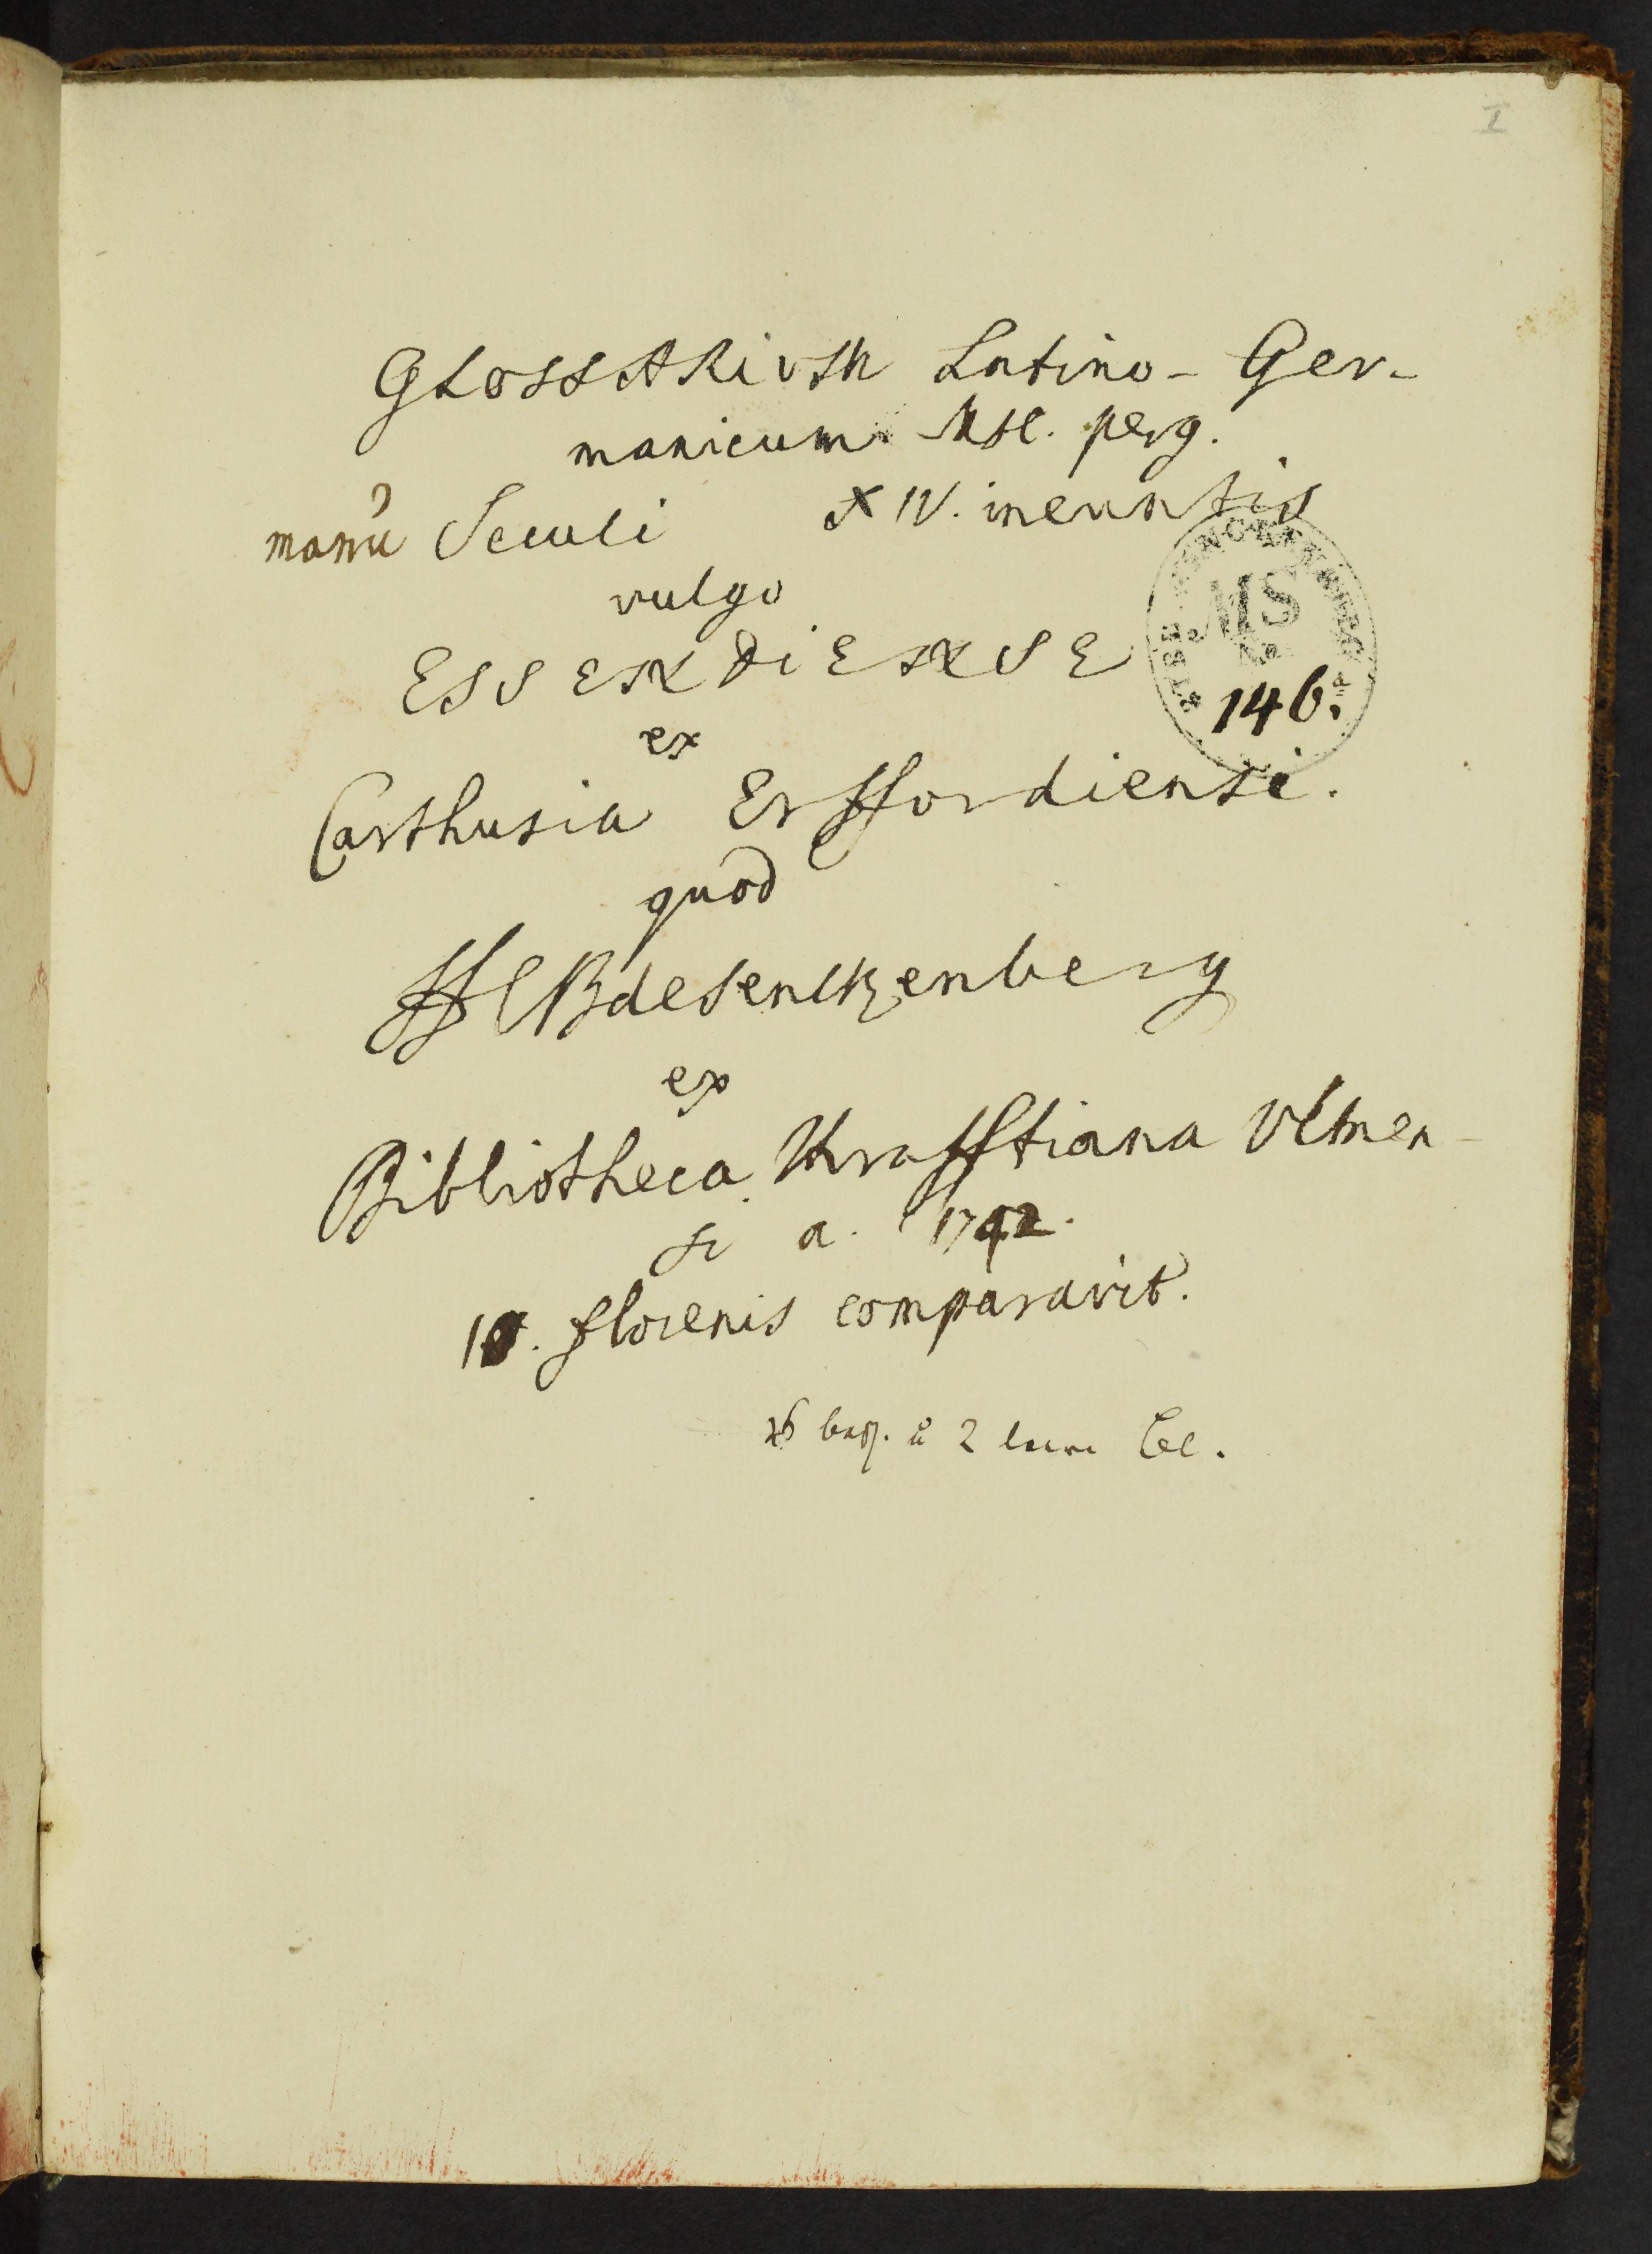 I
GLOSSARiVM Latino-Ger-
manicum Msc. perg.
manu Seculi XIV. ineuntis
vulgo
ESSENDIENSE
MS
No
146.
ex
Carthusia Erffordiensi.
quod
HCB de Senckenberg
ex
Bibliotheca Krafftiana Vlmen-
si a. 1742.
10. florenis comparavit.
26 2